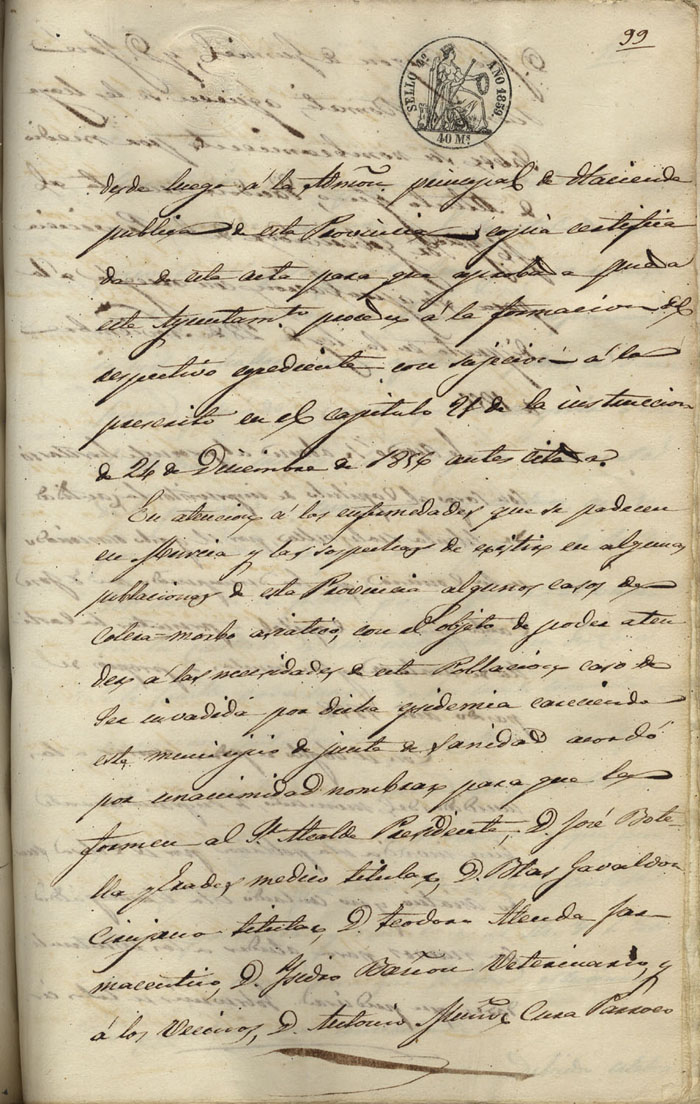 99
SELLO 4º AÑO 1859.
40 Ms
desde luego á la Admon. principal de Hacienda
publica de esta Provincia copia certifica
da de este acta para que aprobada pueda
este Ayuntamto. proceder á la formacion del
respectivo expediente con sujecion á lo
prescrito en el capitulo 21 de la instruccion
de 24 de Diciembre de 1856 antes citada.
En atencion á las enfermedades que se padecen
en Murcia y las sospechas de existir en algunas
poblaciones de esta Provincia algunos casos de
colera-morbo asiatico, con el objeto de poder aten
der á las necesidades de esta Poblacion caso de
ser invadida por dicha epidemia careciendo
este municipio de junta de sanidad acordó
por unanimidad nombrar para que la
formen al Sr. Alcalde Presidente, D. José Bote
lla y medico titular, D. Blas Gavaldon
cirujano titular, D. Teodoro Alenda far
maceutico, D. Ysidro Bañon Veterinario, y
á los Vecinos, D. Antonio Muñoz Cura Parroco